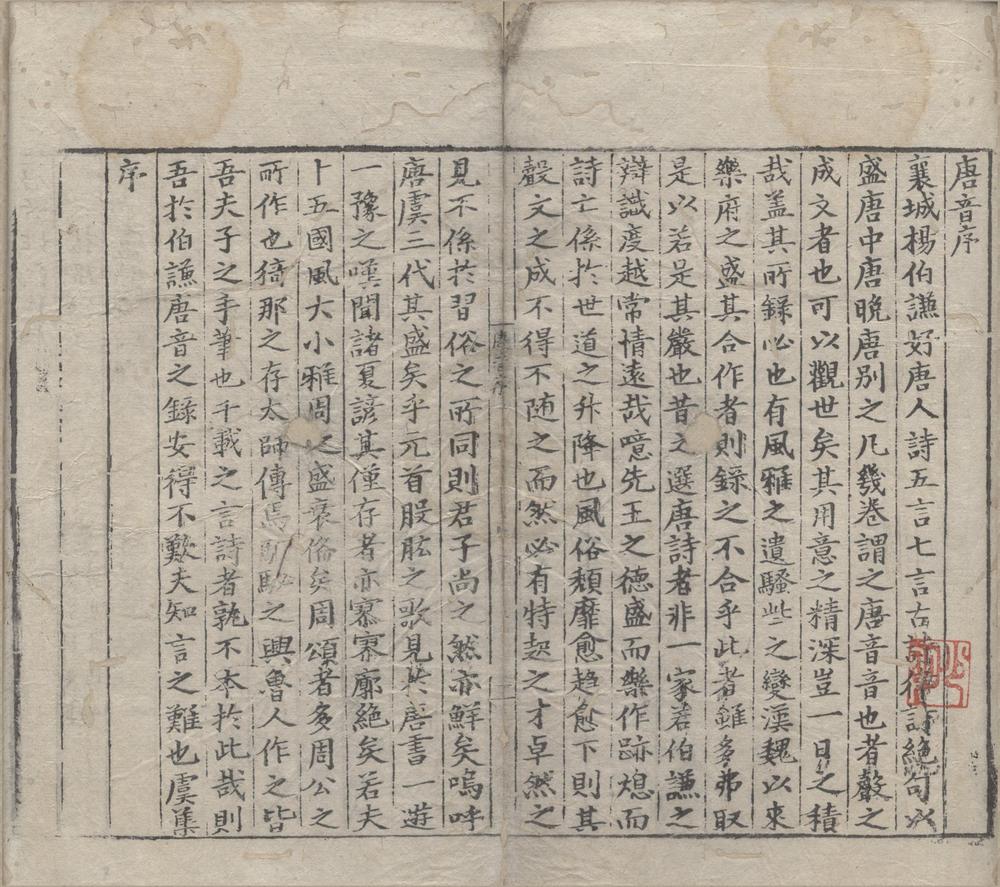 唐音序
襄城楊伯謙好唐人詩五言七言古詩律詩絶句以
盛唐中唐晚唐別之凡幾卷謂之唐音音也者聲之
成文者也可以觀世矣其用意之精深豈一日之積
哉盖其所錄必也有風雅之遺騷些之變漢魏以來
樂府之盛其合作者則錄之不合乎此者雖多弗取
是以若是其嚴也昔之選唐詩者非一家若伯謙之
辯識度越常情遠哉噫先王之德盛而樂作跡熄而
詩亡係於世道之升降也風俗頹靡愈趨愈下則其
聲文之成不得不随之而然必有特起之才卓然之
見不係於習俗之所同則君子尚之然亦鮮矣嗚呼
唐虞三代其盛矣乎元首股肱之歌見於虞書一遊
一豫之嘆聞諸夏諺其僅存者亦寥寥廓絶矣若夫
十五國風大小雅周之盛衰俻矣周頌者多周公之
所作也猗那之存太師傳焉駉駜之興魯人作之皆
吾夫子之手筆也千載之言詩者孰不本於此哉則
吾於伯謙唐音之錄安得不歎夫知言之難也虞集
序